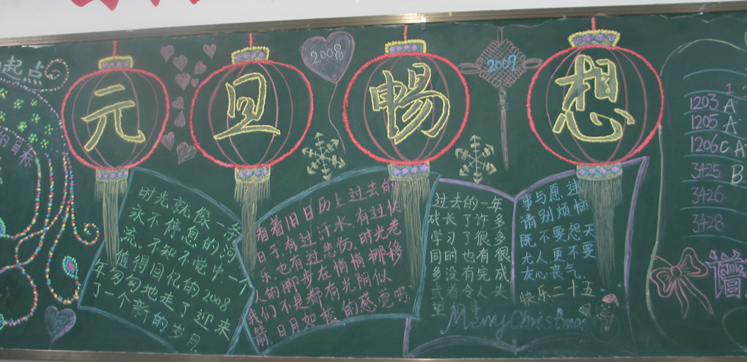 起点
元旦畅想
2008
2009
时光就像一条
永不停息的河
流,不知不觉中,一个
值得回忆的2008
年匆匆地走了迎来
了一个新的岁月
看着旧日历上过去的
日子,有过汗水,有过快
乐,也有过悲伤,时光老
人的脚步在悄悄挪移
我们不是都有光阴似
箭,日月如梭的感觉
过去的一年
成长了许多
学习了很多
同时也有很
多没有完成
事与愿违
请别烦恼
既不要怨天
尤人更不要
灰心丧气
快乐二十五
Merry Christmas
1
1203 A
1205 A
1206 C A
3425 B
3426
3428